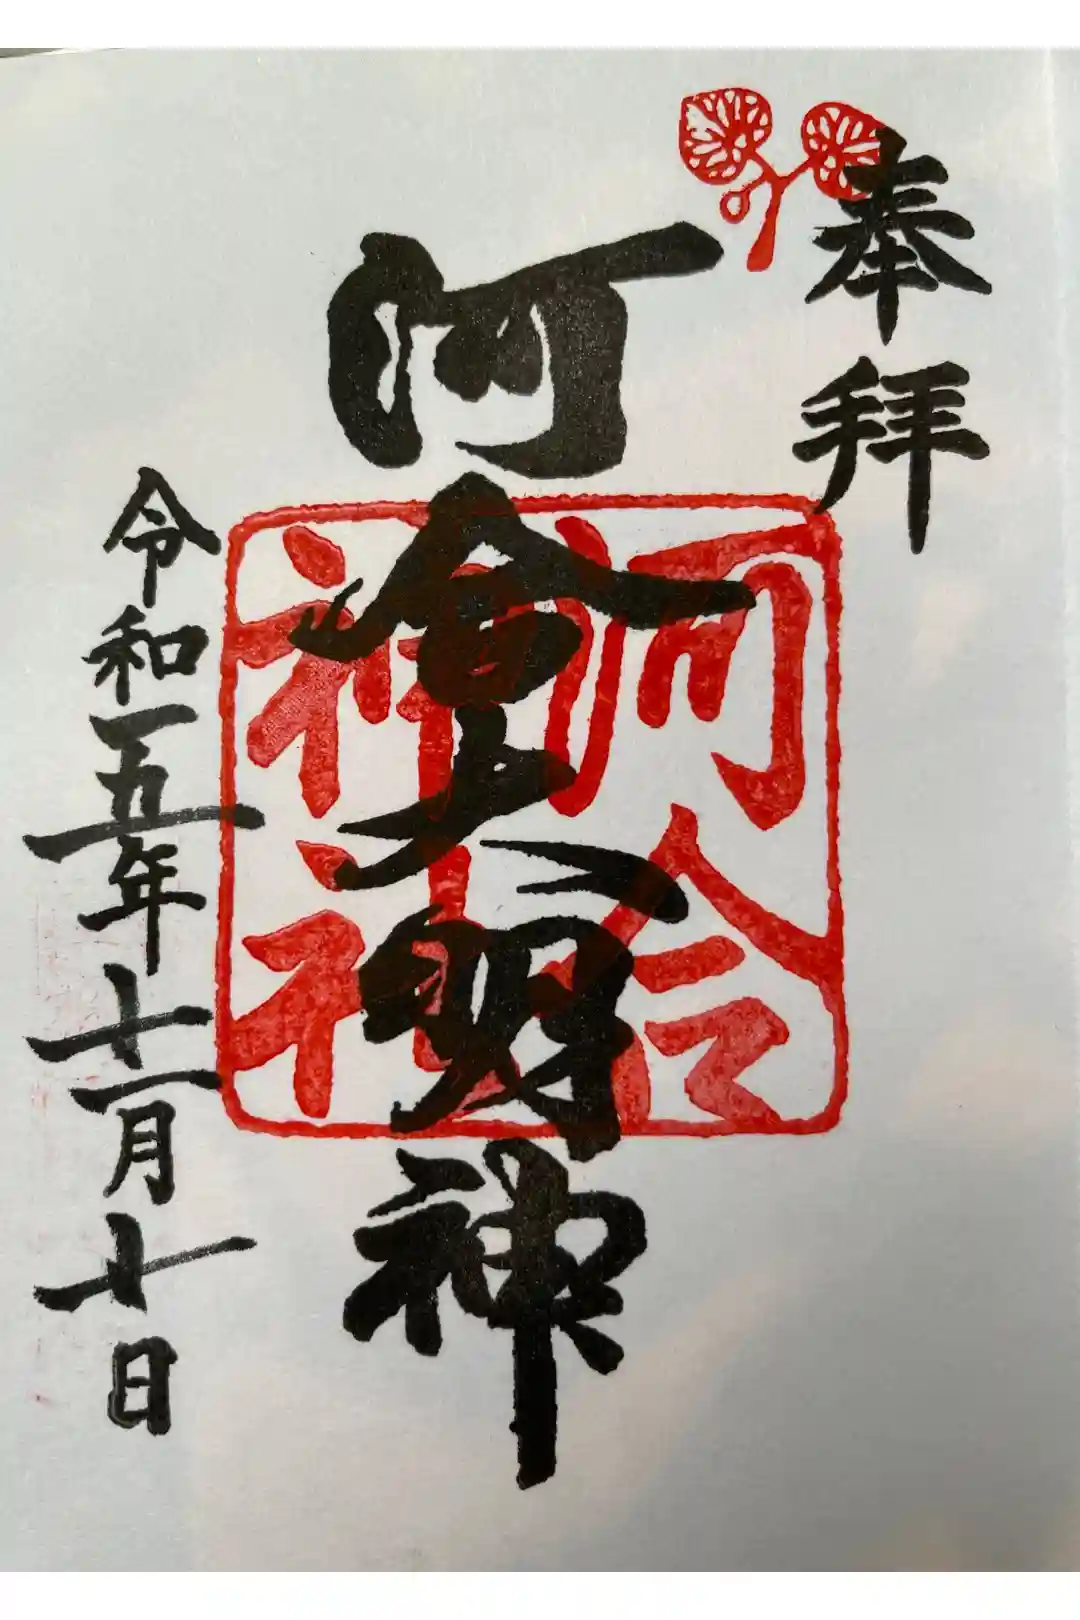 奉拝
河合大明神
河合
神社
令和五年十一月十日